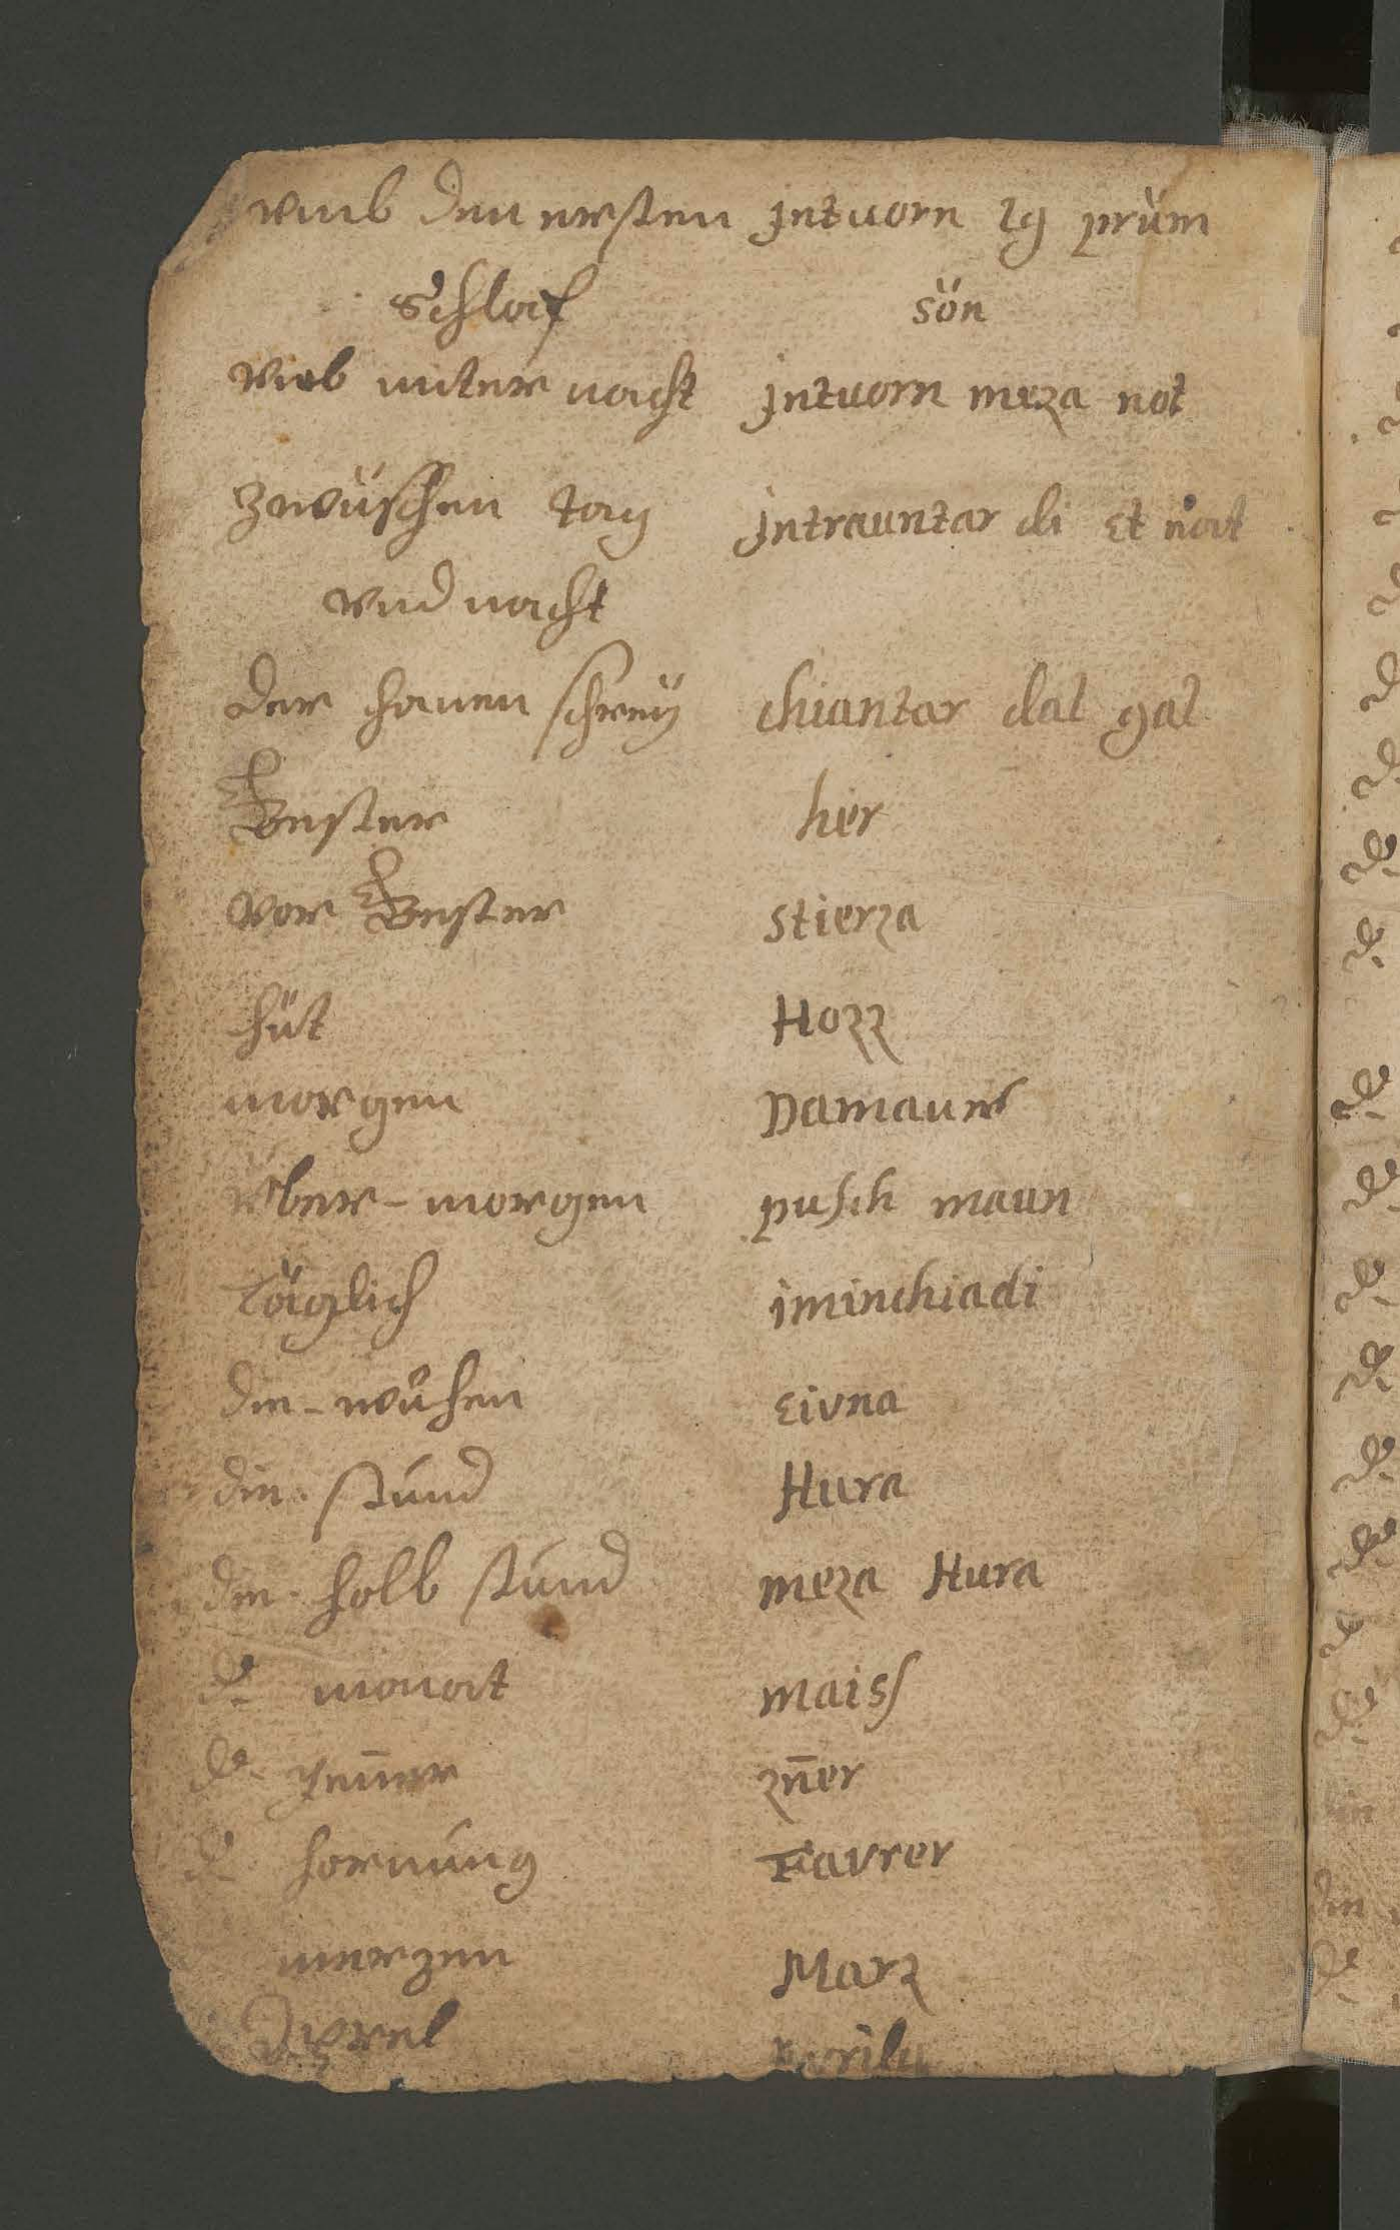 vmb den ersten Intuorn lg prüm
Schlaf sön
vmb miter nacht Intuorn meza not
Zwüschen tag Intrauntar di et nöat
vnd nacht
der hanen schrey chiantar dal gal
Gester hèr
vor Gester stierza
hüt Hozz
morgen Damauns
Vber-morgen pusch maun
Täglich iminchiadi
die-wuchen eivna
die. stund Hura
die. halb stund meza Hura
d. monat maiss
de. Jen̄er zn̄er
d. hornung Favrer
merzen Marz
Aprel